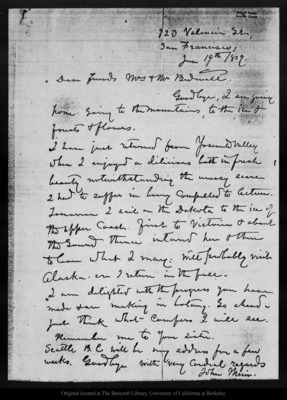 920 Valencia St.,
San Francisco,
June 19th/879.
Dear Friends Mrs & Mr Bidwell.
Goodbye, I am going
home. Going to the mountains, to the ice &
forests & flowers.
I have just returned from Yosemite Valley
where I enjoyed a delicious bath in fresh
beauty notwithstanding the uneasy scare
I had to suffer in being compelled to lecture.
Tomorrow I sail on the Dakota to the ice of
the upper Coast. First to Victoria & about
the Sound thence inland here & there
to learn what I may: will probably visit
Alaska ere I return in the fall.
I am delighted with the progress you have
made & are making in botany. Go ahead &
just think what Conifers I will see.
Remember me to your sister.
Seattle will be my address for a few
weeks. Goodbye with very cordial regards
John Muir.
Original located at The Bancroft Library, University of California at Berkeley